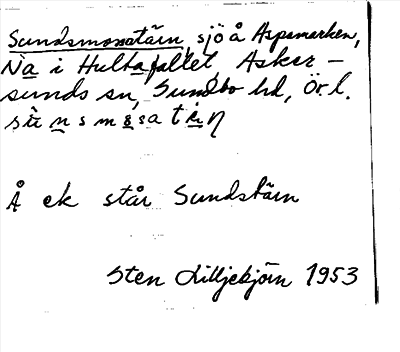 Sundsmossatärn, sjö å Aspamarken,
Na i Hultafallet, Asker-
sunds sn, Sundbo hd, Örl.
Å ek står Sundstärn
Sten Lilljebjörn 1953